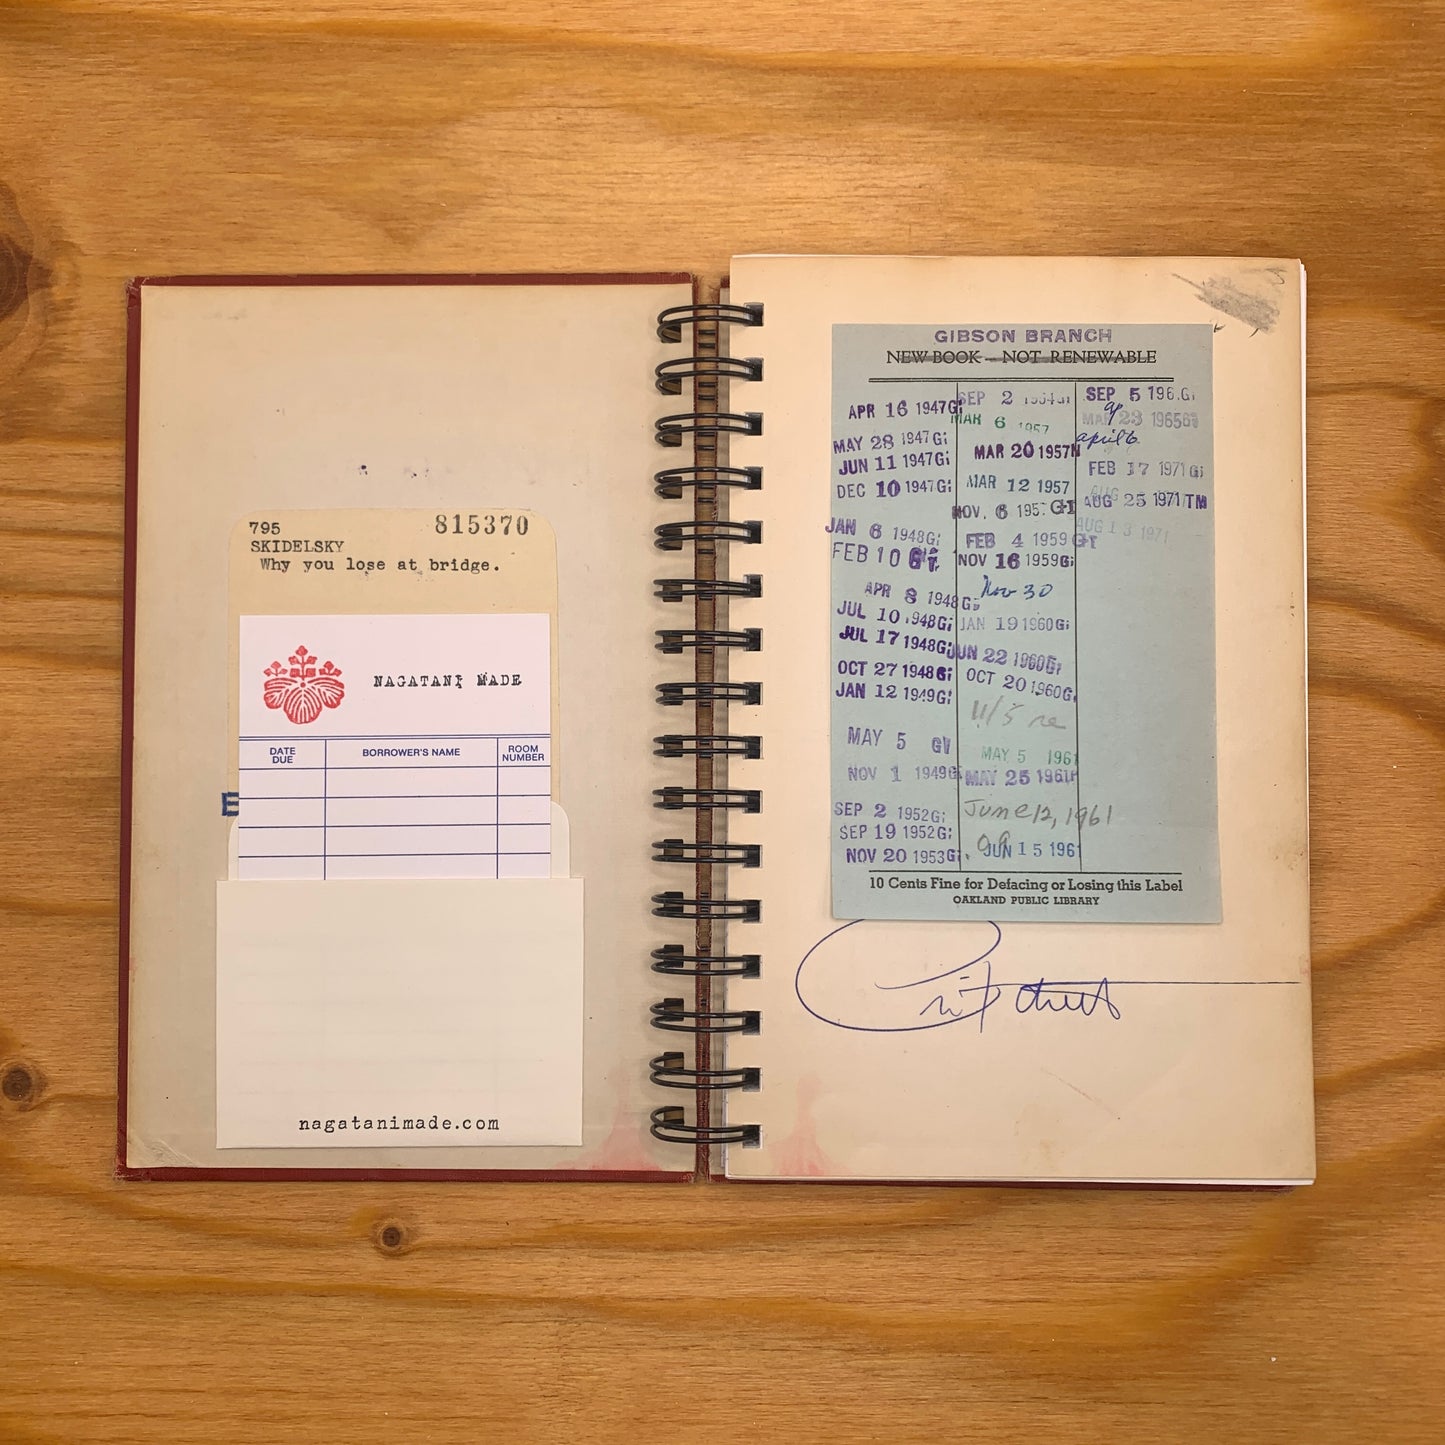 795 815370
SKIDELSKY
Why you lose at bridge.
NAGATANI MADE
DATE DUE
BORROWER'S NAME
ROOM NUMBER
nagatanimade.com
GIBSON BRANCH
NEW BOOK - NOT RENEWABLE
APR 16 1947 Gi
MAY 28 1947 Gi
JUN 11 1947 Gi
DEC 10 1947 Gi
JAN 6 1948 Gi
FEB 10
APR 8 1948 Gi
JUL 10 1948 Gi
JUL 17 1948 Gi
OCT 27 1948 Gi
JAN 12 1949 Gi
MAY 5 Gi
NOV 1 1949 Gi
SEP 2 1952 Gi
SEP 19 1952 Gi
NOV 20 1953 Gi
SEP 2 1954 Gi
MAR 6 1957
MAR 20 1957
MAR 12 1957
NOV. 6 195 GI
FEB 4 1959 GI
NOV 16 1959 Gi
Nov 30
JAN 19 1960 Gi
JUN 22 1960 Gi
OCT 20 1960 Gi
11/5
MAY 5 1961
MAY 25 1961
June 12, 1961
JUN 15 1961
SEP 5 196 Gi
MAR 23 1965 Gi
april 6
FEB 17 1971 Gi
AUG
AUG 25 1971 TM
AUG 13 1971
10 Cents Fine for Defacing or Losing this Label
OAKLAND PUBLIC LIBRARY